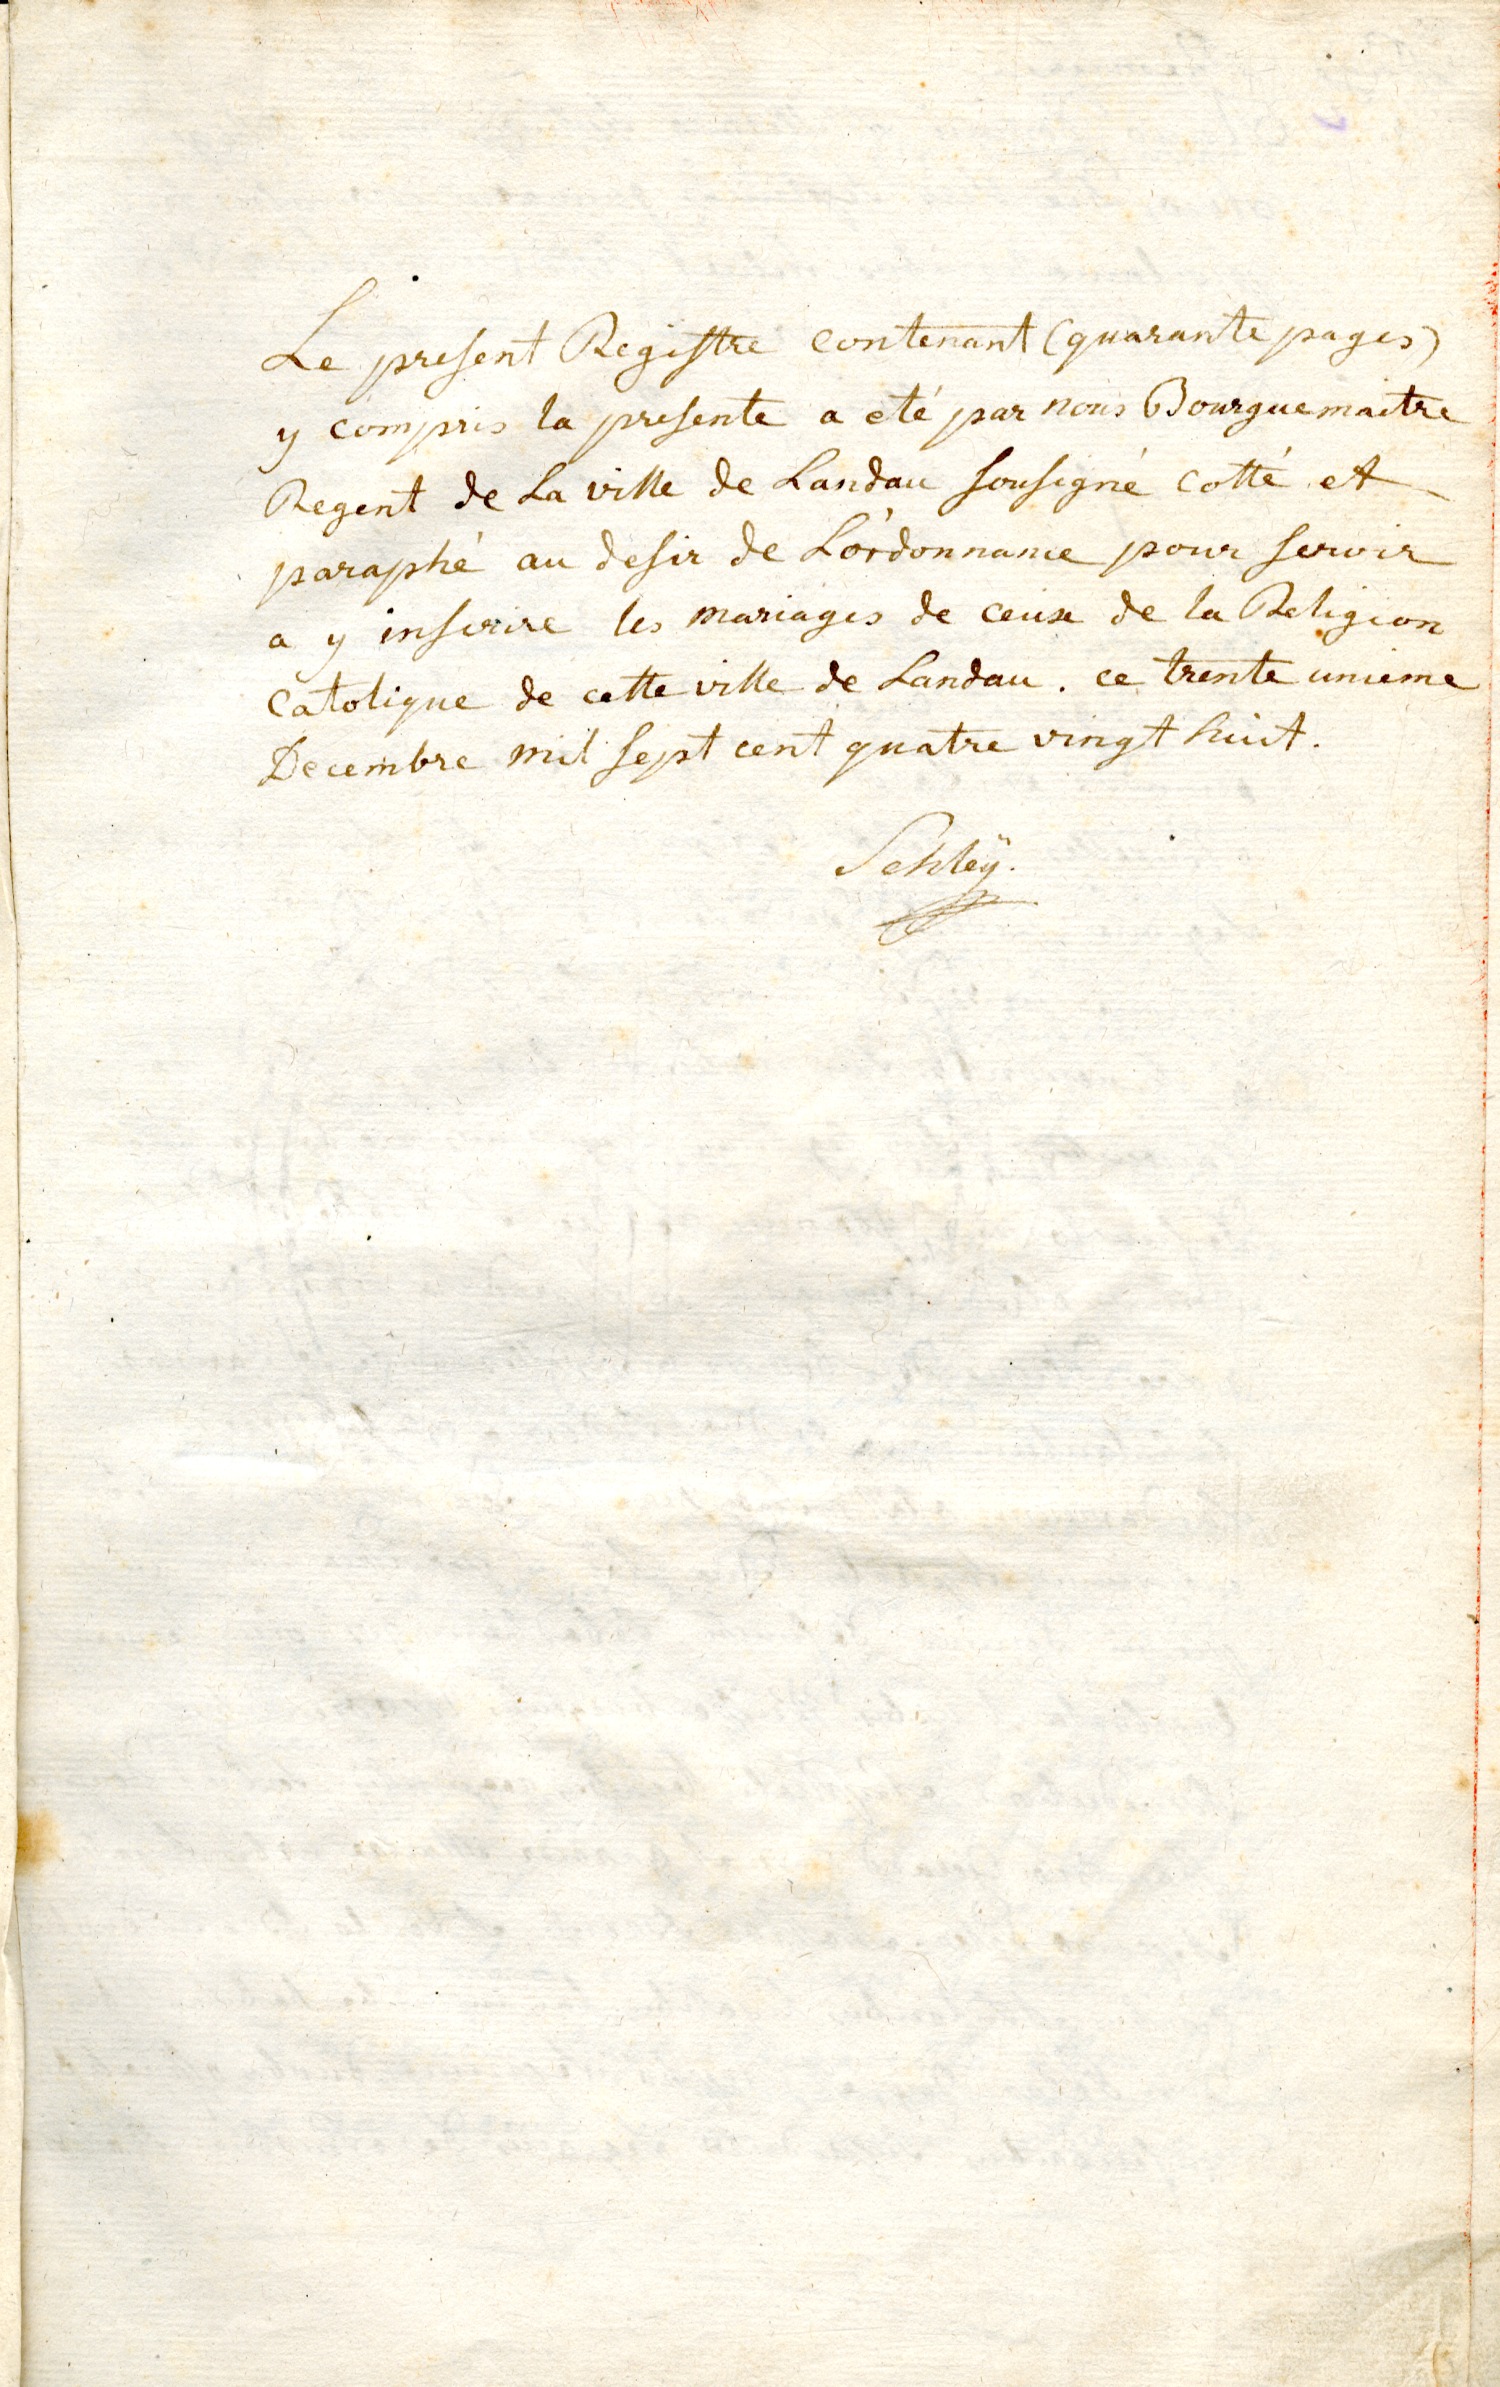 Le present Registre contenant (quarante pages)
y compris la presente a eté par nous Bourguemaitre
Regent de La ville de Landau sousigné cotté et
paraphé au desir de L'ordonnance pour servir
a y inscrire les mariages de ceux de la Religion
Catolique de cette ville de Landau. ce trente unieme
Decembre mil sept cent quatre vingt huit.
Schleÿ.